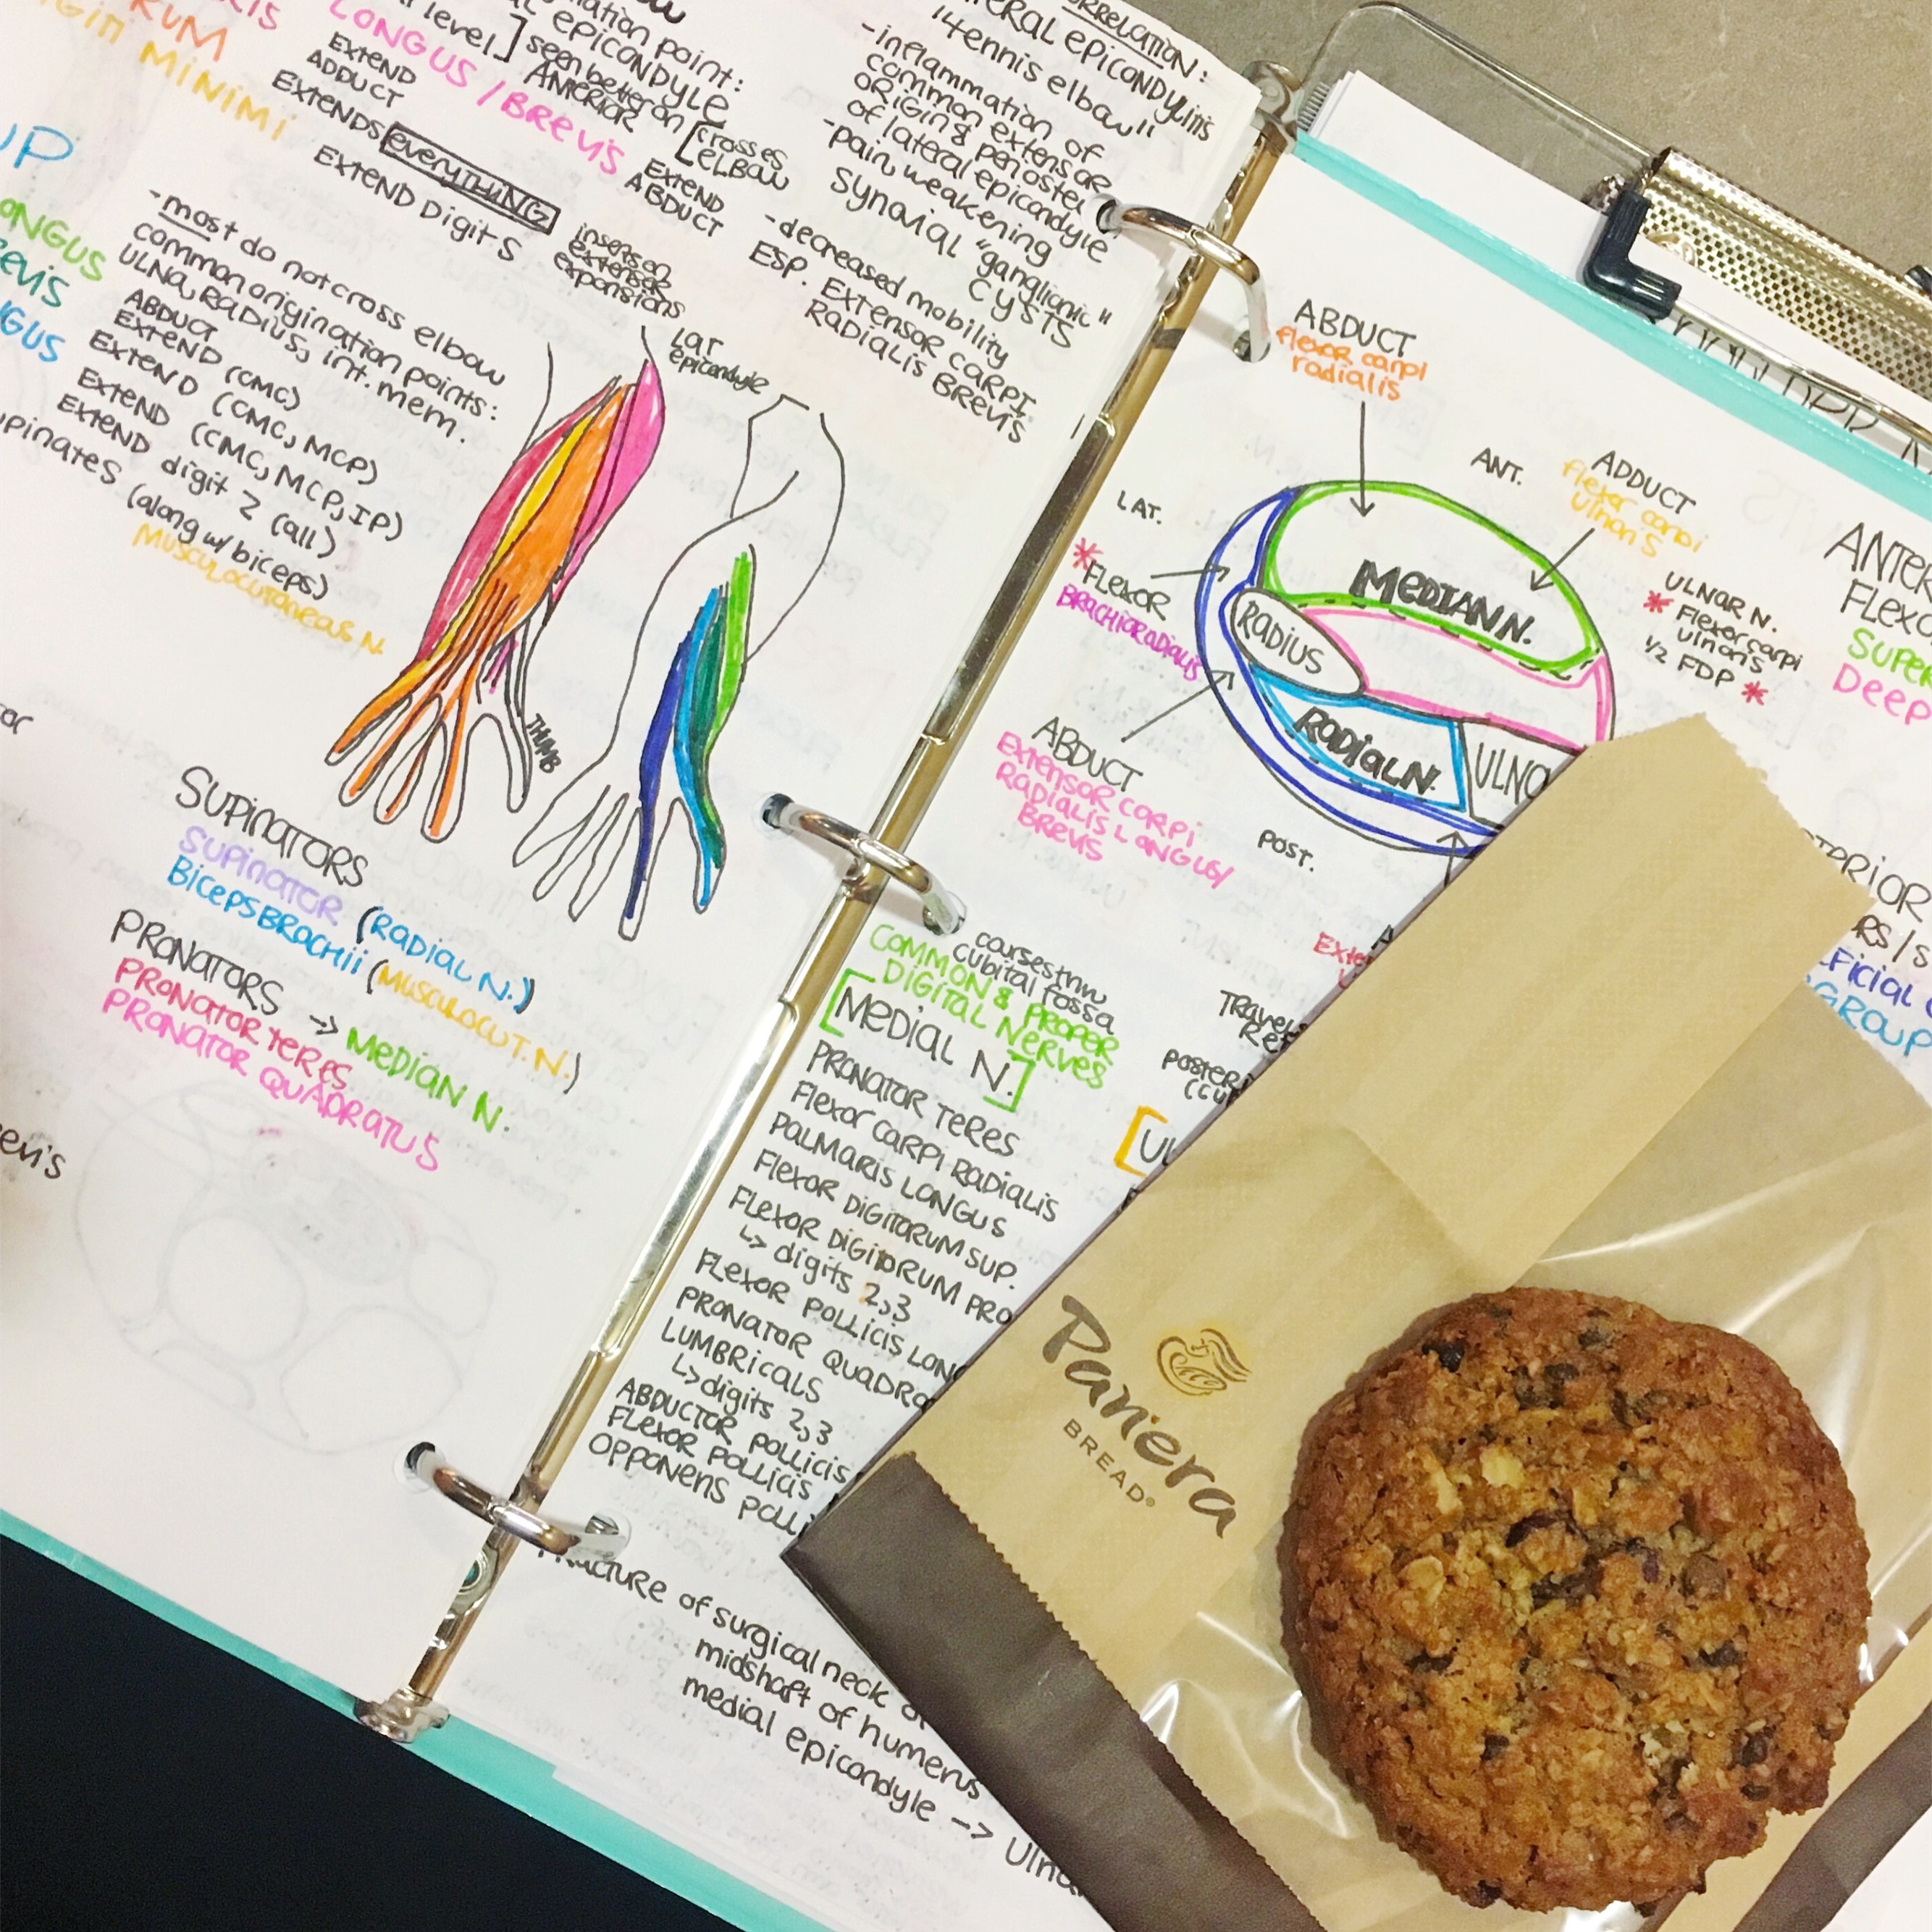 RUM
MINIMI
LONGUS / BREVIS
level]
EPICONDYLE
seen better on
ANTERIOR
[crosses
ELBOW
EXTEND
ADDUCT
EXTENDS EVERYTHING
EXTEND DigitS
EXTEND
ABDUCT
inserts on
extensor
expansions
-most do not cross elbow
common origination points:
ULNA, RADIUS, int. mem.
ABDUCT
EXTEND (CMC)
EXTEND (CMC, MCP)
EXTEND (CMC, MCP, IP)
EXTEND digit 2 (all)
(along w/ biceps)
MUSCULOCUTANEOUS N.
LAT
epicondyle
THUMB
SUPINATORS
SUPINATOR (RADIAL N.)
BICEPS BRACHII (MUSCULOCUT. N.)
PRONATORS -> MEDIAN N.
PRONATOR TERES
PRONATOR QUADRATUS
EPICONDYLITIS
"tennis elbow"
-inflammation of
common extensor
ORIGIN &
of lateral epicondyle
-pain, weakening
Synovial "ganglionic"
CYSTS
-decreased mobility
ESP. EXTENSOR CARPI
RADIALIS BREVIS
ABDUCT
flexor carpi
radialis
ANT.
ADDUCT
flexor carpi
ulnaris
LAT.
*FLEXOR
BRACHIORADIALIS
MEDIAN N.
RADIUS
RADIAL N.
ULNAR N.
* Flexor carpi
ulnaris
1/2 FDP *
ABDUCT
EXTENSOR CARPI
RADIALIS LONGUS/
BREVIS
POST.
courses thru
cubital fossa
COMMON & PROPER
DIGITAL NERVES
[MEDIAL N.]
PRONATOR TERES
FLEXOR CARPI RADIALIS
PALMARIS LONGUS
FLEXOR DIGITORUM SUP.
FLEXOR DIGITORUM PRO
↳ digits 2,3
FLEXOR POLLICIS LONG
PRONATOR QUADRA
LUMBRICALS
↳ digits 2,3
ABDUCTOR POLLICIS
FLEXOR POLLICIS
OPPONENS POLLI
of surgical neck
midshaft of humerus
medial epicondyle ->
Panera
BREAD®